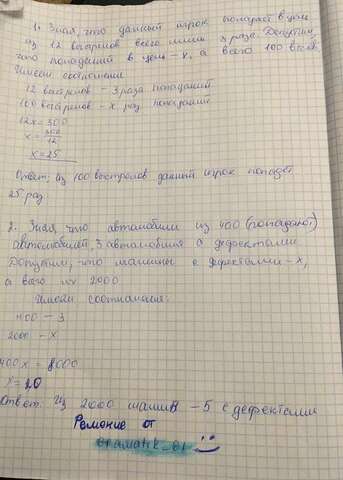 1. Зная, что данный игрок попадает в цель
из 12 выстрелов всего лишь 3 раза. Допустим,
что попаданий в цель – x, а всего 100 выстр.
Имеем соотношение
12 выстрелов – 3 раза попаданий
100 выстрелов – x раз попадания
12x = 300
x = 300/12
x = 25
Ответ: Из 100 выстрелов данный игрок попадет
25 раз.
2. Зная, что автомобили из 400
автомобилей, 3 автомобиля с дефектами
Допустим, что машины с дефектами – x,
а всего их 2000
Имеем соотношения:
400 – 3
2000 – x
400x = 8000
x = 20
Ответ: Из 2000 машин – 5 с дефектами
Решение от
gramatik_01